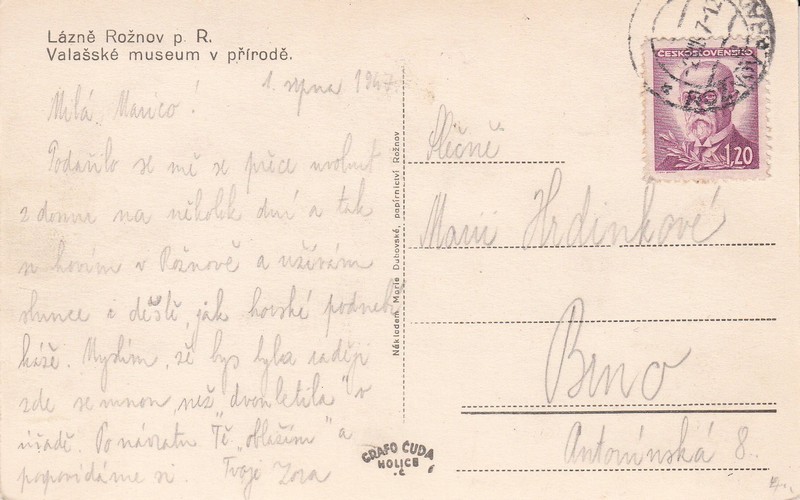 Lázně Rožnov p. R.
Valašské museum v přírodě.
1. srpna 1947.
Milá Marico!
Podařilo se mě se přece uvolnit
z domu na několik dní a tak
si hovím v Rožnově a užívám
slunce i deště, jak horské podnebí
káže. Myslím, že bys byla raději
zde se mnou, než „dvouletila" v
úřadě. Po návratu Tě „oblažím" a
popovídáme si. Tvoje Zora
Nákladem Marie Dubovské, papírnictví Rožnov
GRAFO ČUDA
HOLICE
Č
ČESKOSLOVENSKO
1,20
Slečně
Marii Hrdinkové
Brno
Antonínská 8.